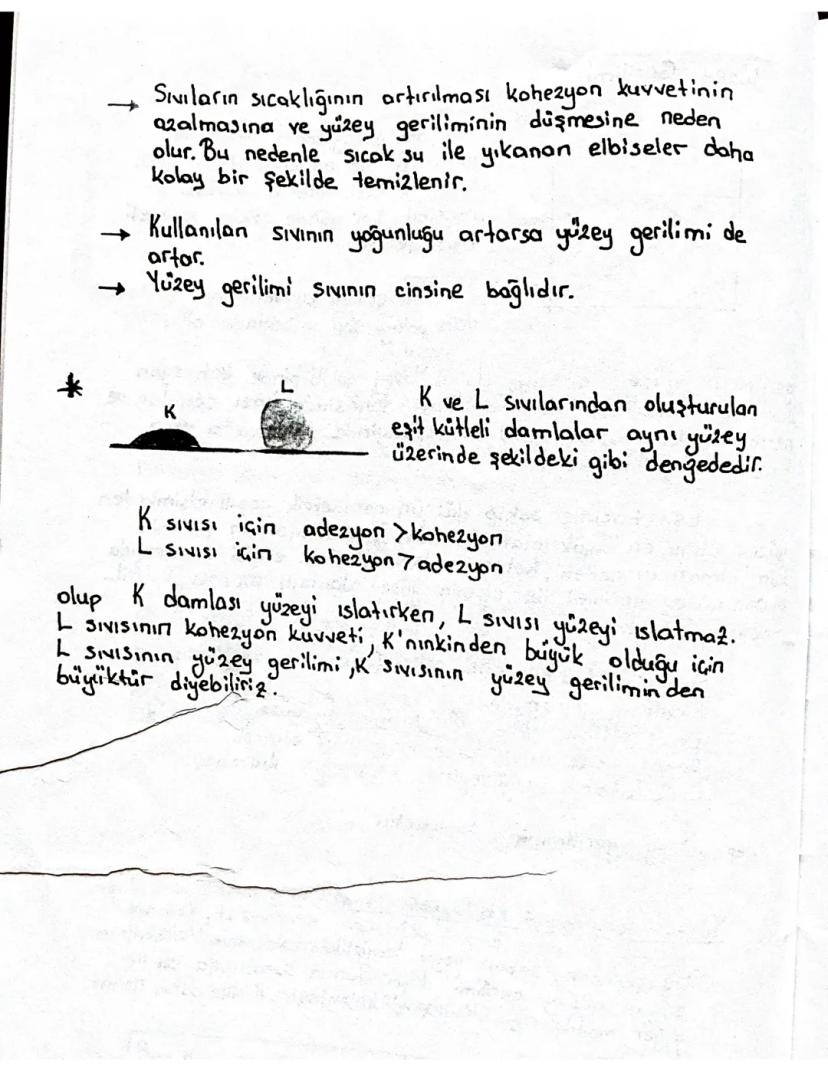 → Sıvıların sıcaklığının artırılması kohezyon kuvvetinin
azalmasına ve yüzey geriliminin düşmesine neden
olur. Bu nedenle sıcak su ile yıkanan elbiseler daha
kolay bir şekilde temizlenir.
→ Kullanılan sıvının yoğunluğu artarsa yüzey gerilimi de
artar.
→ Yüzey gerilimi sıvının cinsine bağlıdır.
* K L
K ve L sıvılarından oluşturulan
eşit kütleli damlalar aynı yüzey
üzerinde şekildeki gibi dengededir.
K sıvısı için adezyon > kohezyon
L sıvısı için kohezyon > adezyon
olup K damlası yüzeyi ıslatırken, L sıvısı yüzeyi ıslatmaz.
L sıvısının kohezyon kuvveti, K'nınkinden büyük olduğu için
L sıvısının yüzey gerilimi, K sıvısının yüzey geriliminden
büyüktür diyebiliriz.